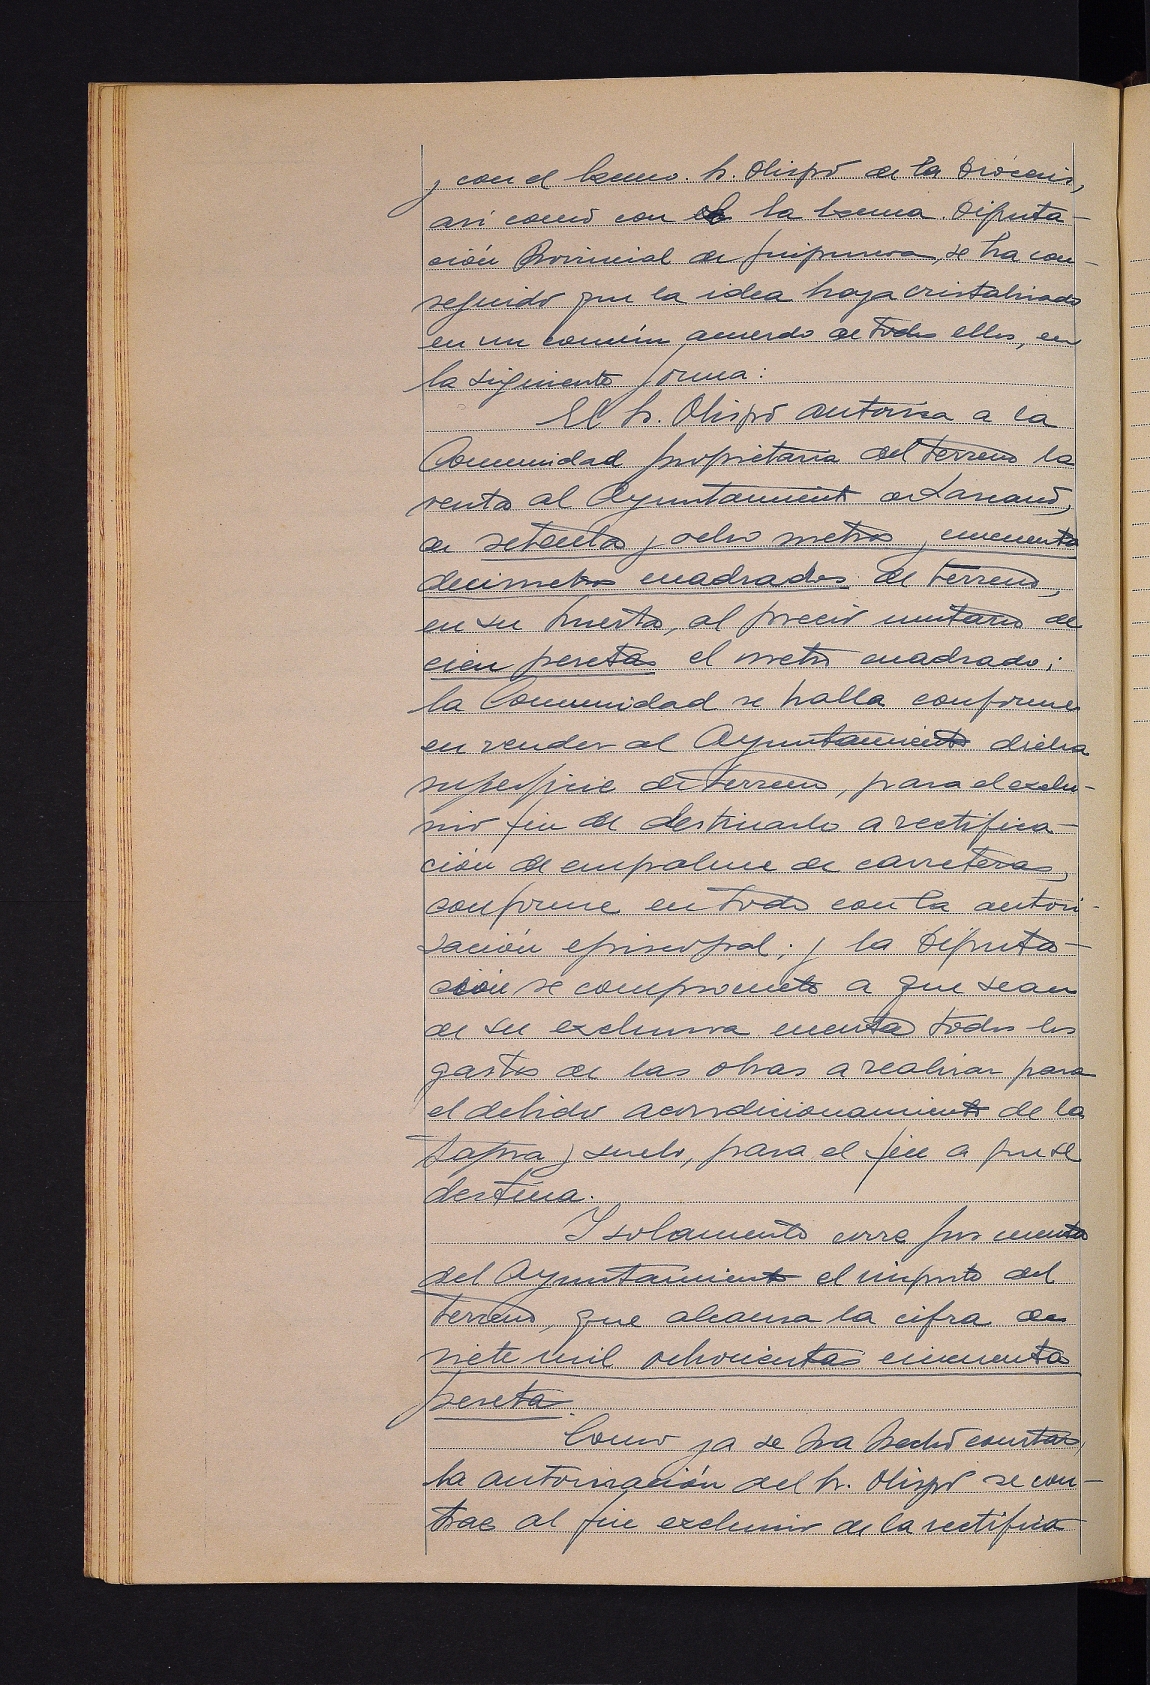 y con el Excmo. Sr. Obispo de la Diócesis,
así como con la Excma. Diputa-
ción Provincial de Guipuzcoa, se ha con-
seguido que la idea haya cristalizado
en un común acuerdo de todos ellos, en
la siguiente forma:
El Sr. Obispo autoriza a la
Comunidad propietaria del terreno la
venta al Ayuntamiento de Lazcano,
de setenta y ocho metros y cincuenta
decimetros cuadrados de terreno,
en su huerta, al precio unitario de
cien pesetas el metro cuadrado;
la Comunidad se halla conforme
en vender al Ayuntamiento dicha
superficie de terreno, para el exclu-
sivo fin de destinarlo a rectifica-
ción de empalme de carreteras,
conforme en todo con la autori-
zación episcopal; y la Diputa-
ción se compromete a que sean
de su exclusiva cuenta todos los
gastos de las obras a realizar para
el debido acondicionamiento de la
tapia y suelo, para el fin a que se
destina.
Y solamente corre por cuenta
del Ayuntamiento el importe del
terreno, que alcanza la cifra de
siete mil ochocientas cincuenta
pesetas.
Como ya se ha hecho constar,
la autorización del Sr. Obispo se con-
trae al fin exclusivo de la rectifica-